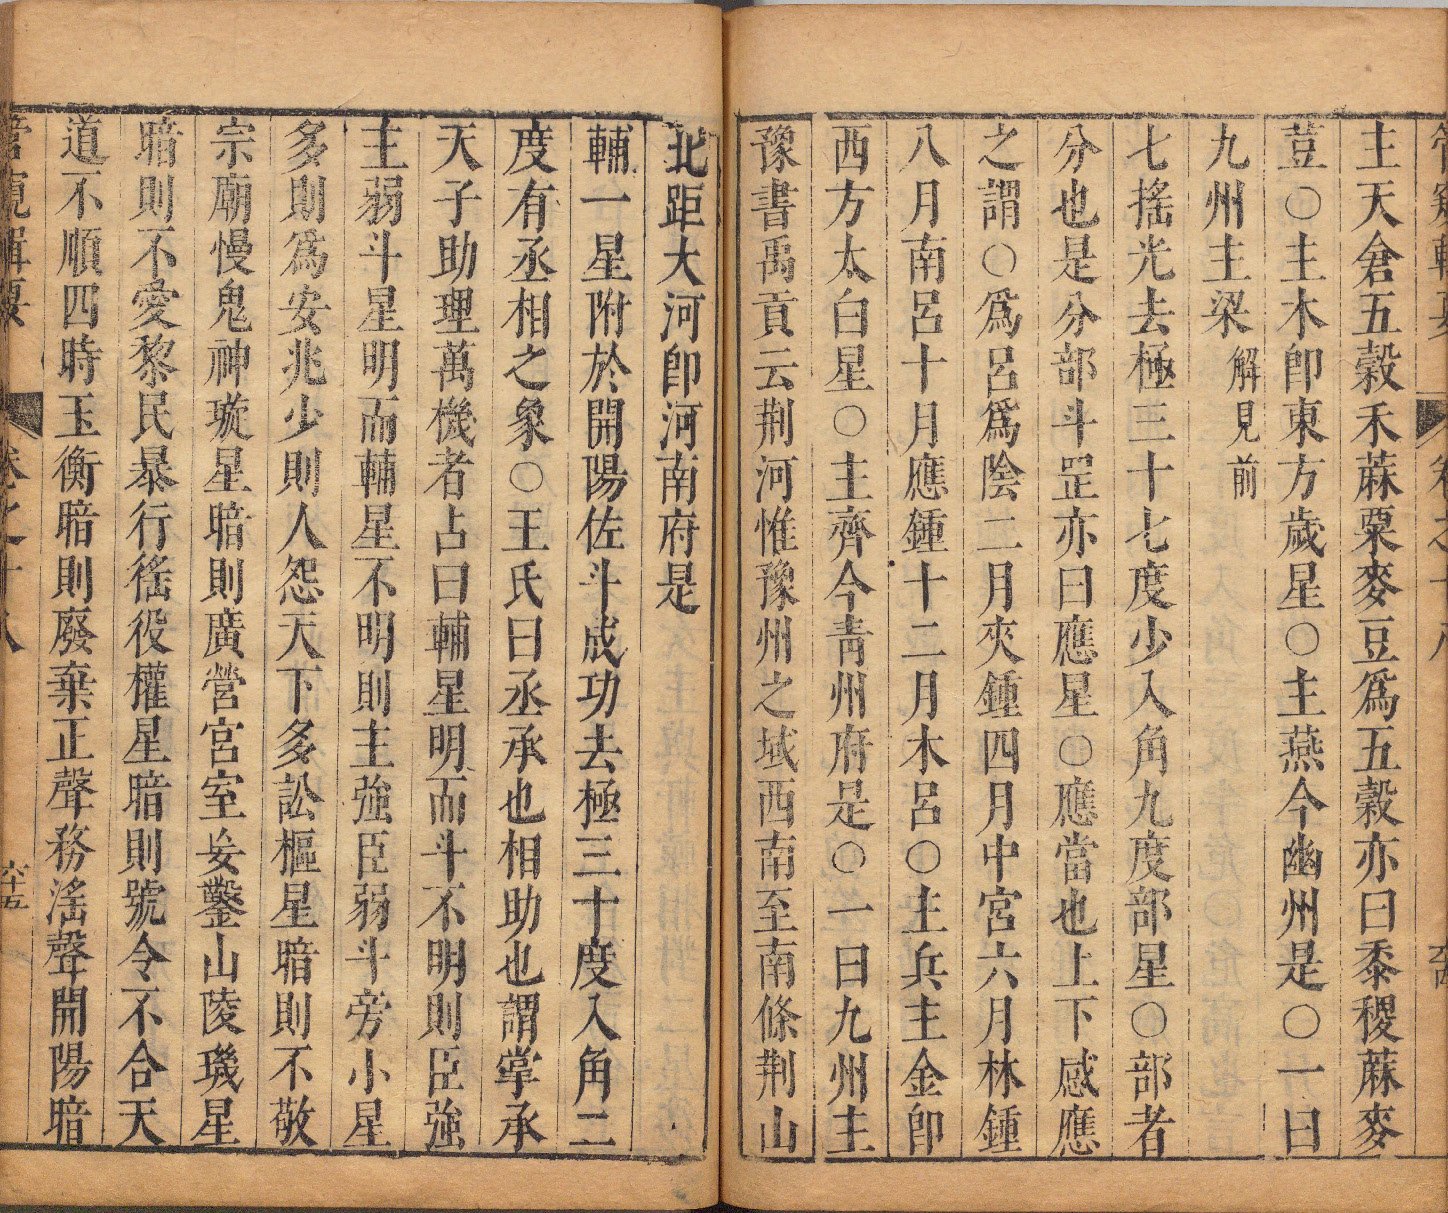 主天倉五穀禾蔴粟麥豆爲五穀亦曰黍稷蔴麥
荳○主木卽東方歲星○主燕今幽州是○一曰
九州主梁解見前
七搖光去極三十七度少入角九度部星○部者
分也是分部斗罡亦曰應星○應當也上下感應
之謂○爲呂爲陰二月夾鍾四月中宮六月林鍾
八月南呂十月應鍾十二月木呂○主兵主金卽
西方太白星○主齊今青州府是○一曰九州主
豫書禹貢云荆河惟豫州之域西南至南條荆山
北距大河卽河南府是
輔一星附於開陽佐斗成功去極三十度入角二
度有丞相之象○王氏曰丞承也相助也謂掌承
天子助理萬機者占曰輔星明而斗不明則臣強
主弱斗星明而輔星不明則主強臣弱斗旁小星
多則爲安兆少則人怨天下多訟樞星暗則不敬
宗廟慢鬼神璇星暗則廣營宮室妄鑿山陵璣星
暗則不愛黎民暴行徭役權星暗則號令不合天
道不順四時玉衡暗則廢棄正聲務滛聲開陽暗
卷之十八
六十五